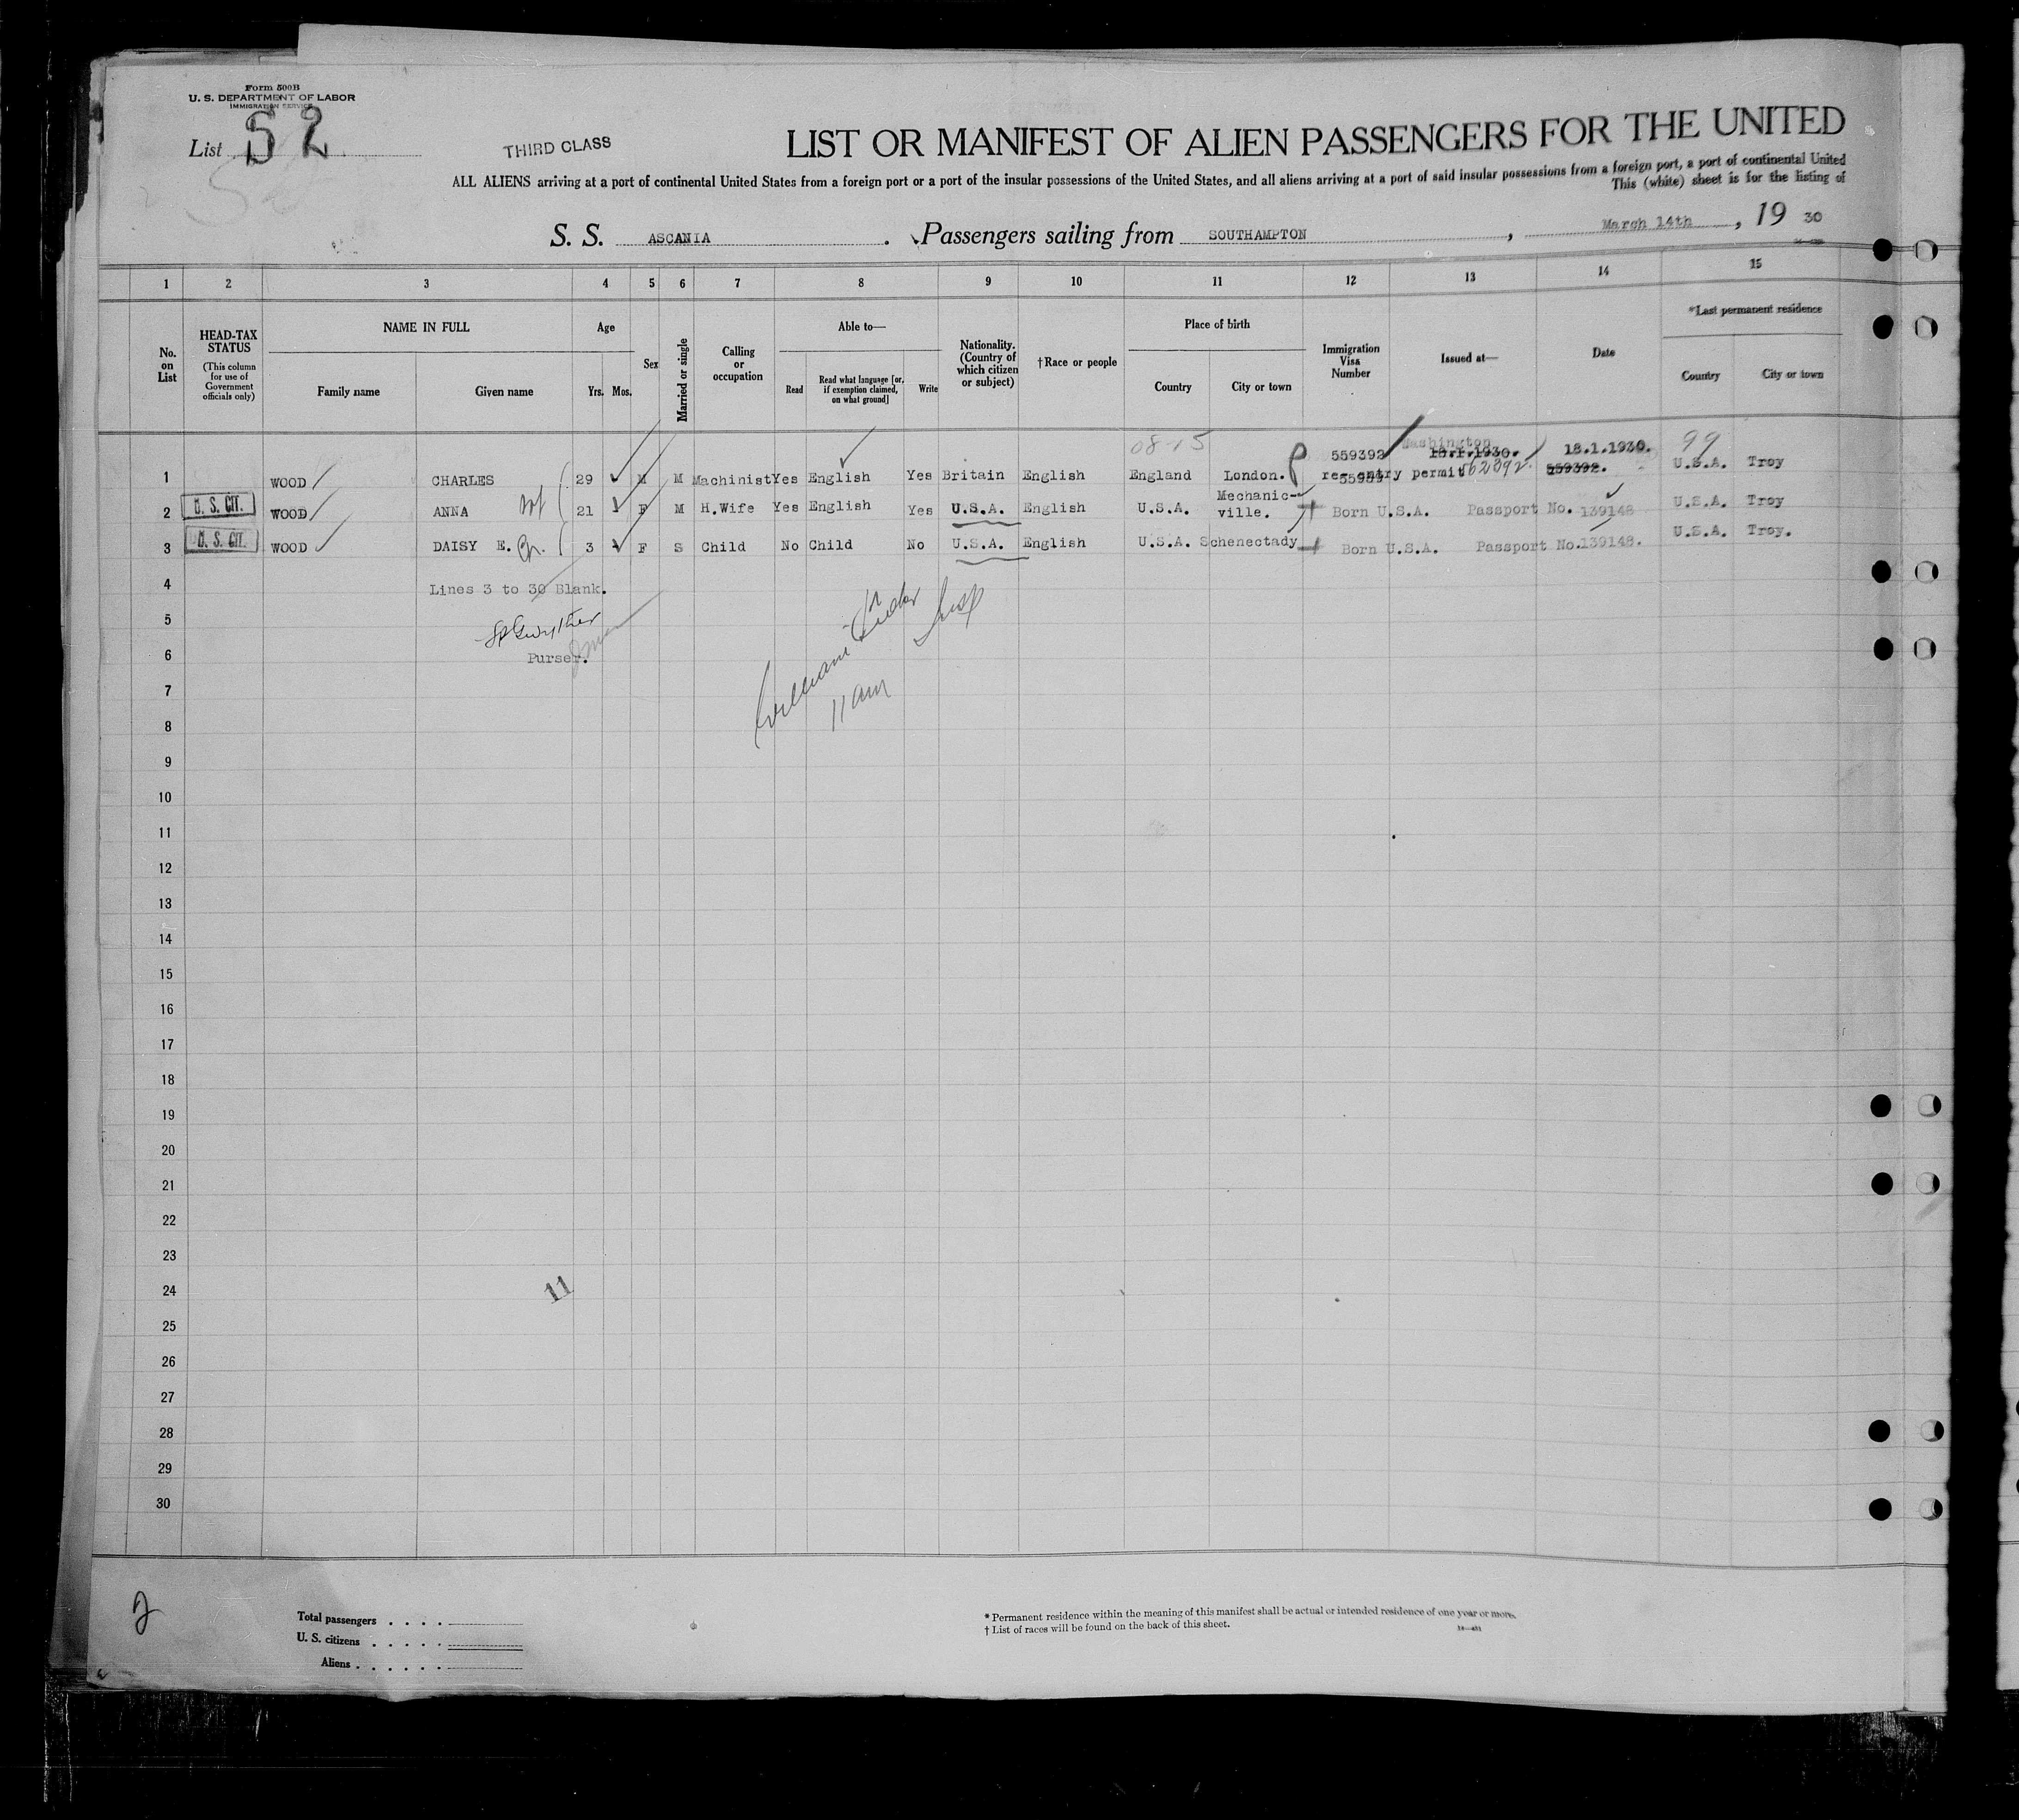 Form 500B
U. S. DEPARTMENT OF LABOR
IMMIGRATION SERVICE
List 52
THIRD CLASS
LIST OR MANIFEST OF ALIEN PASSENGERS FOR THE UNITED
ALL ALIENS arriving at a port of continental United States from a foreign port or a port of the insular possessions of the United States, and all aliens arriving at a port of said insular possessions from a foreign port, a port of continental United
This (white) sheet is for the listing of
S. S. ASCANIA. Passengers sailing from SOUTHAMPTON, March 14th, 19 30
1 2 3 4 5 6 7 8 9 10 11 12 13 14 15
No. on List
HEAD-TAX STATUS
(This column for use of Government officials only)
NAME IN FULL
Family name Given name
Age
Yrs. Mos.
Sex
Married or single
Calling or occupation
Able to—
Read
Read what language [or, if exemption claimed, on what ground]
Write
Nationality. (Country of which citizen or subject)
†Race or people
Place of birth
Country City or town
Immigration Visa Number
Issued at—
Date
*Last permanent residence
Country City or town
08-15 Washington 99
559392 18.1.1930. 18.1.1930.
1 WOOD CHARLES 29 M M Machinist Yes English Yes Britain English England London. re-entry permit 562392. 559392. U.S.A. Troy
2 U. S. CIT. WOOD ANNA 21 F M H.Wife Yes English Yes U.S.A. English U.S.A. Mechanic-ville. Born U.S.A. Passport No. 139148 U.S.A. Troy
3 U. S. CIT. WOOD DAISY E. 3 F S Child No Child No U.S.A. English U.S.A. Schenectady Born U.S.A. Passport No. 139148. U.S.A. Troy.
4 Lines 3 to 30 Blank.
5
6 Purser.
William
Insp
11 am
7
8
9
10
11
12
13
14
15
16
17
18
19
20
21
22
23
24
11
25
26
27
28
29
30
2
Total passengers
U. S. citizens
Aliens
* Permanent residence within the meaning of this manifest shall be actual or intended residence of one year or more.
† List of races will be found on the back of this sheet.